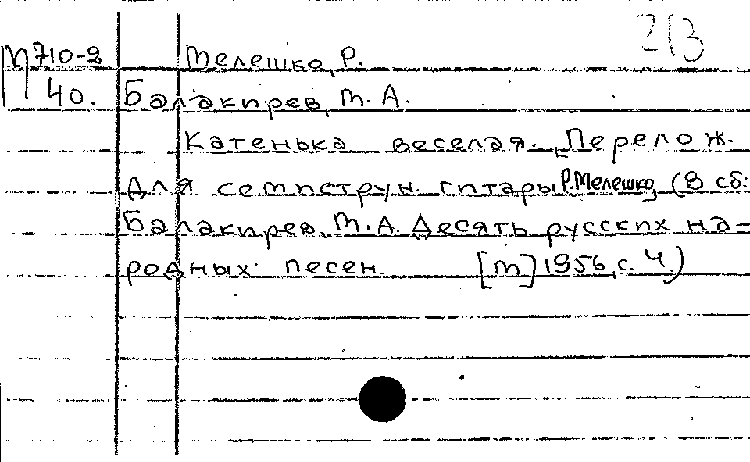 2/3
М710-2 Мелешко, Р.
40. Балакирев, М. А.
Катенька веселая. Перелож.
для семиструн. гитары Р. Мелешко, (В сб:
Балакирев, М. А. Десять русских на-
родных песен. [М] 1956, с. 4.)